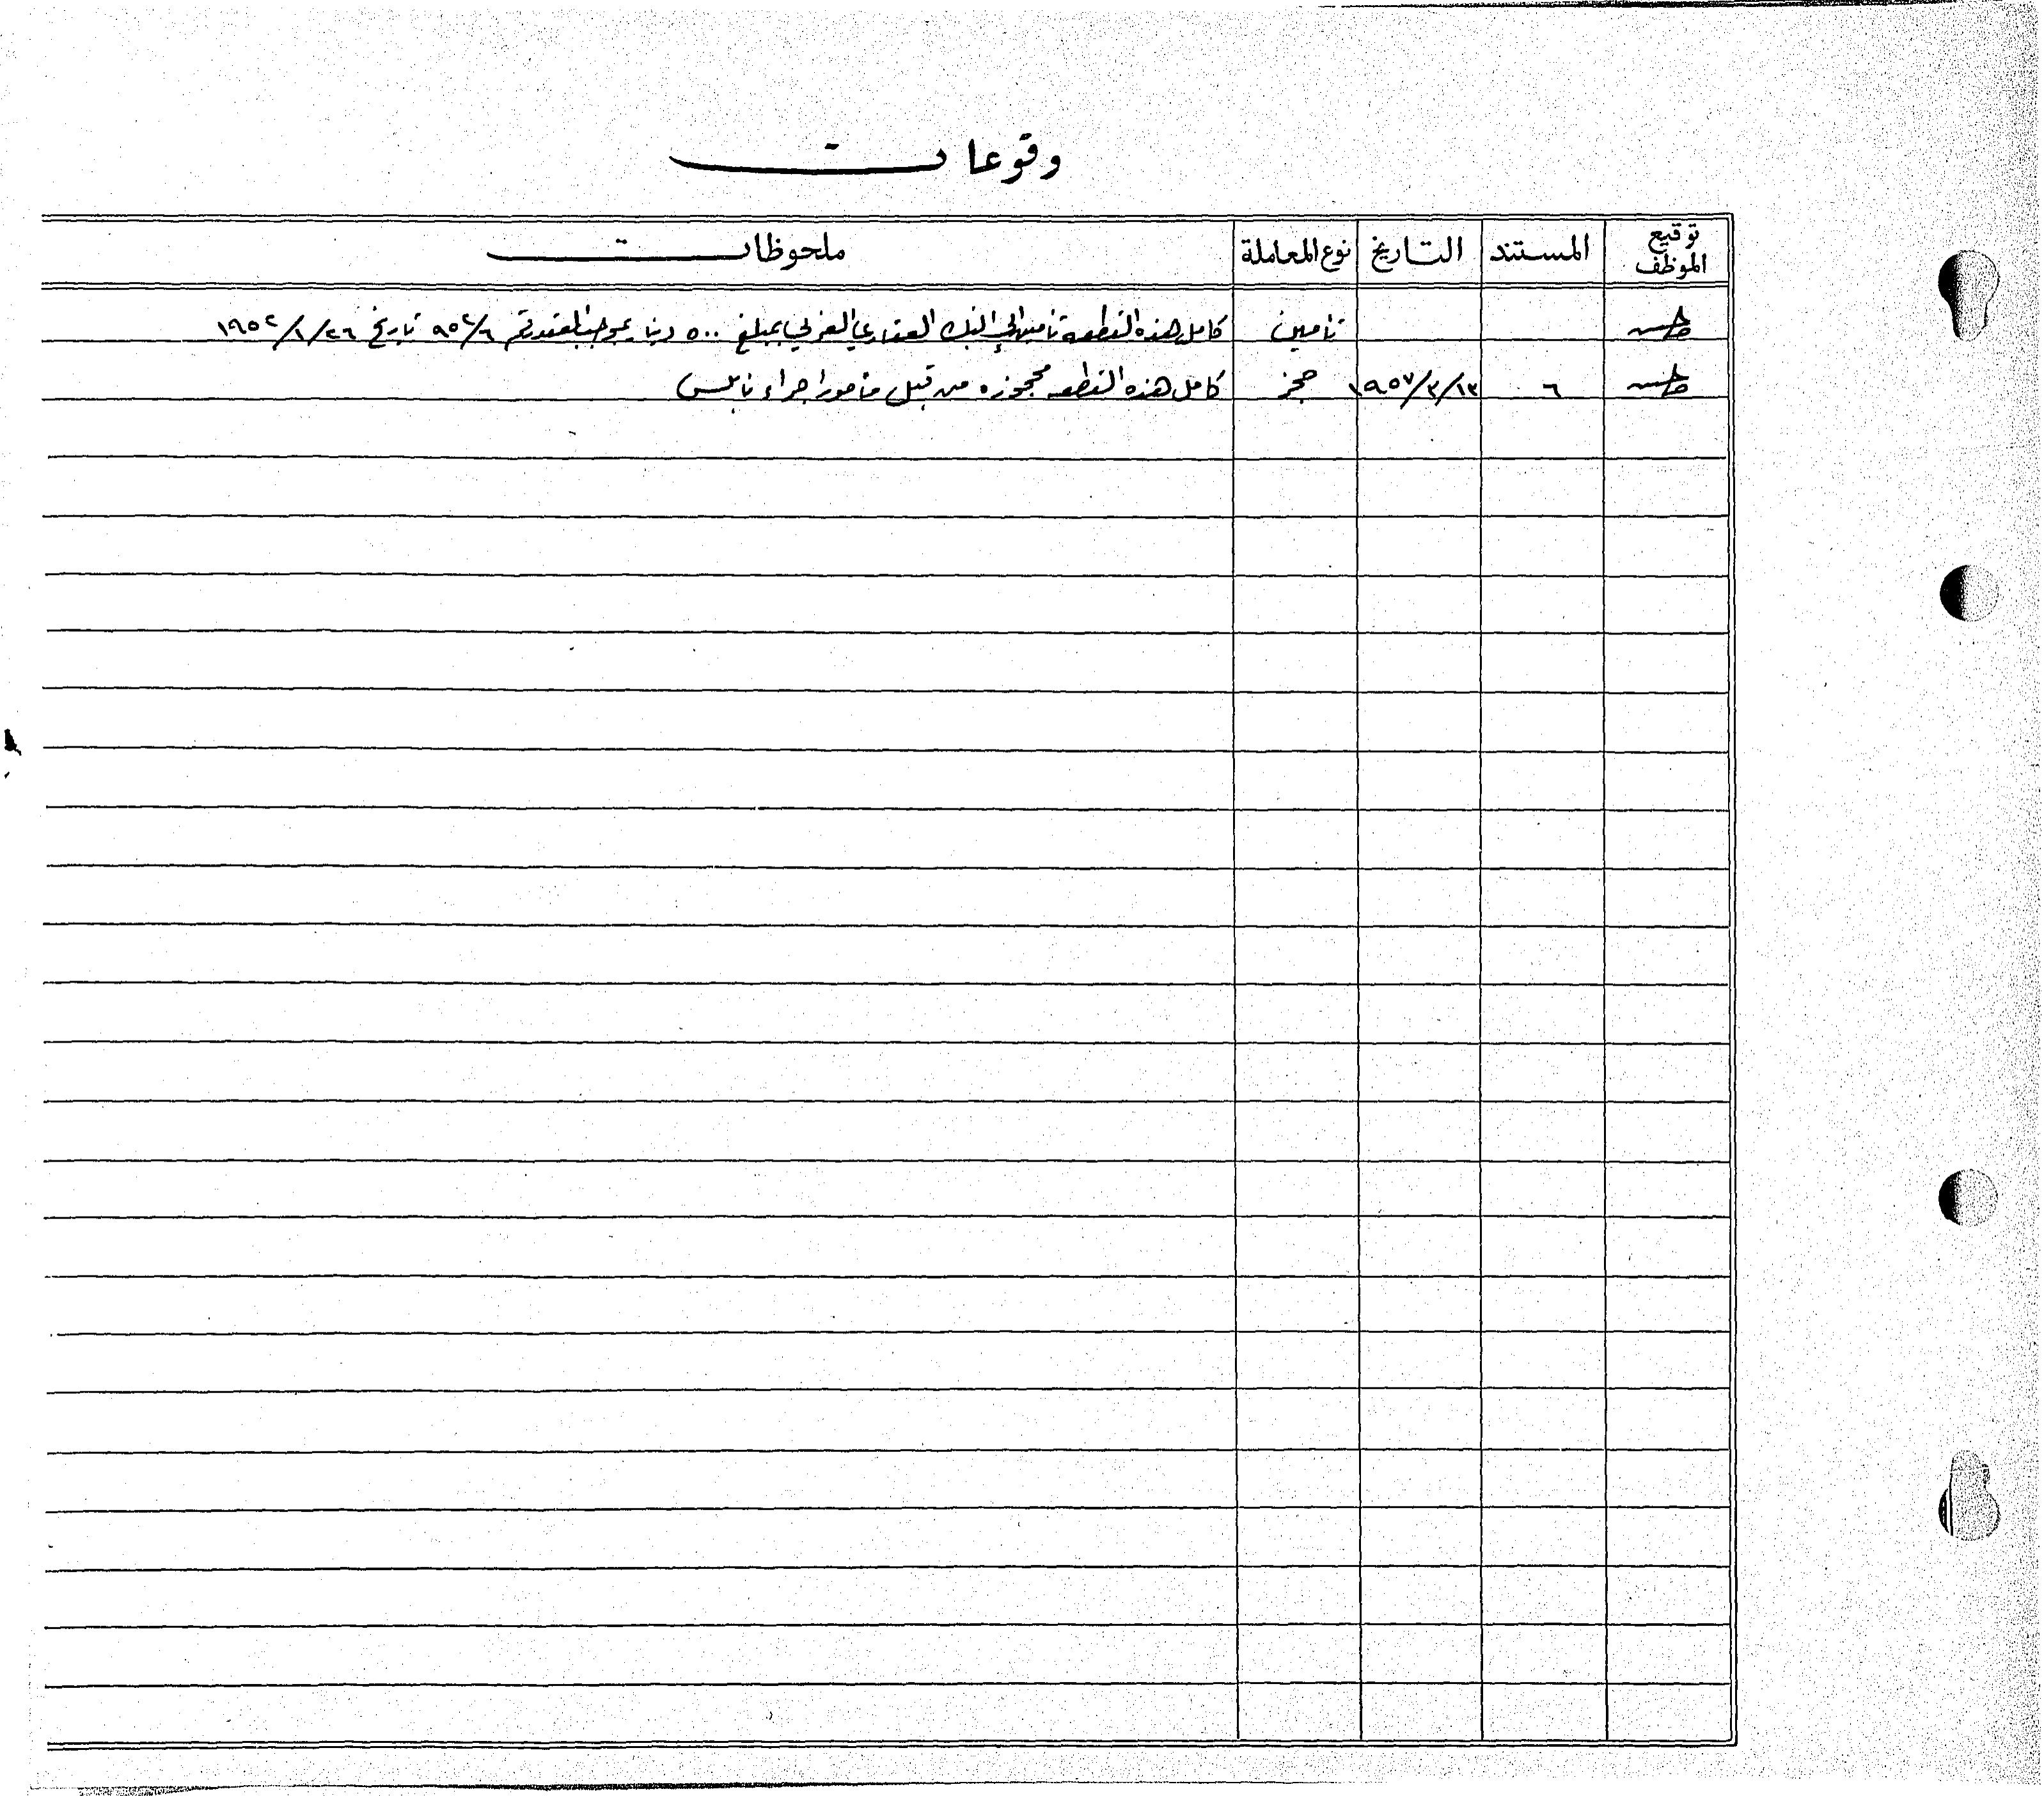 وقوعات
توقيع الموظف المستند التاريخ نوع المعاملة ملحوظات
تأمين كامل هذه القطعه تأمين الى البنك العقاري العربي بمبلغ ٥٠٠ دينار بموجب العقد رقم ٩٥٢/٦ تاريخ ١٩٥٢/١/٢٦
٦ ١٩٥٧/٣/١٣ حجز كامل هذه القطعه محجوزه من قبل مأمور اجراء نابلس